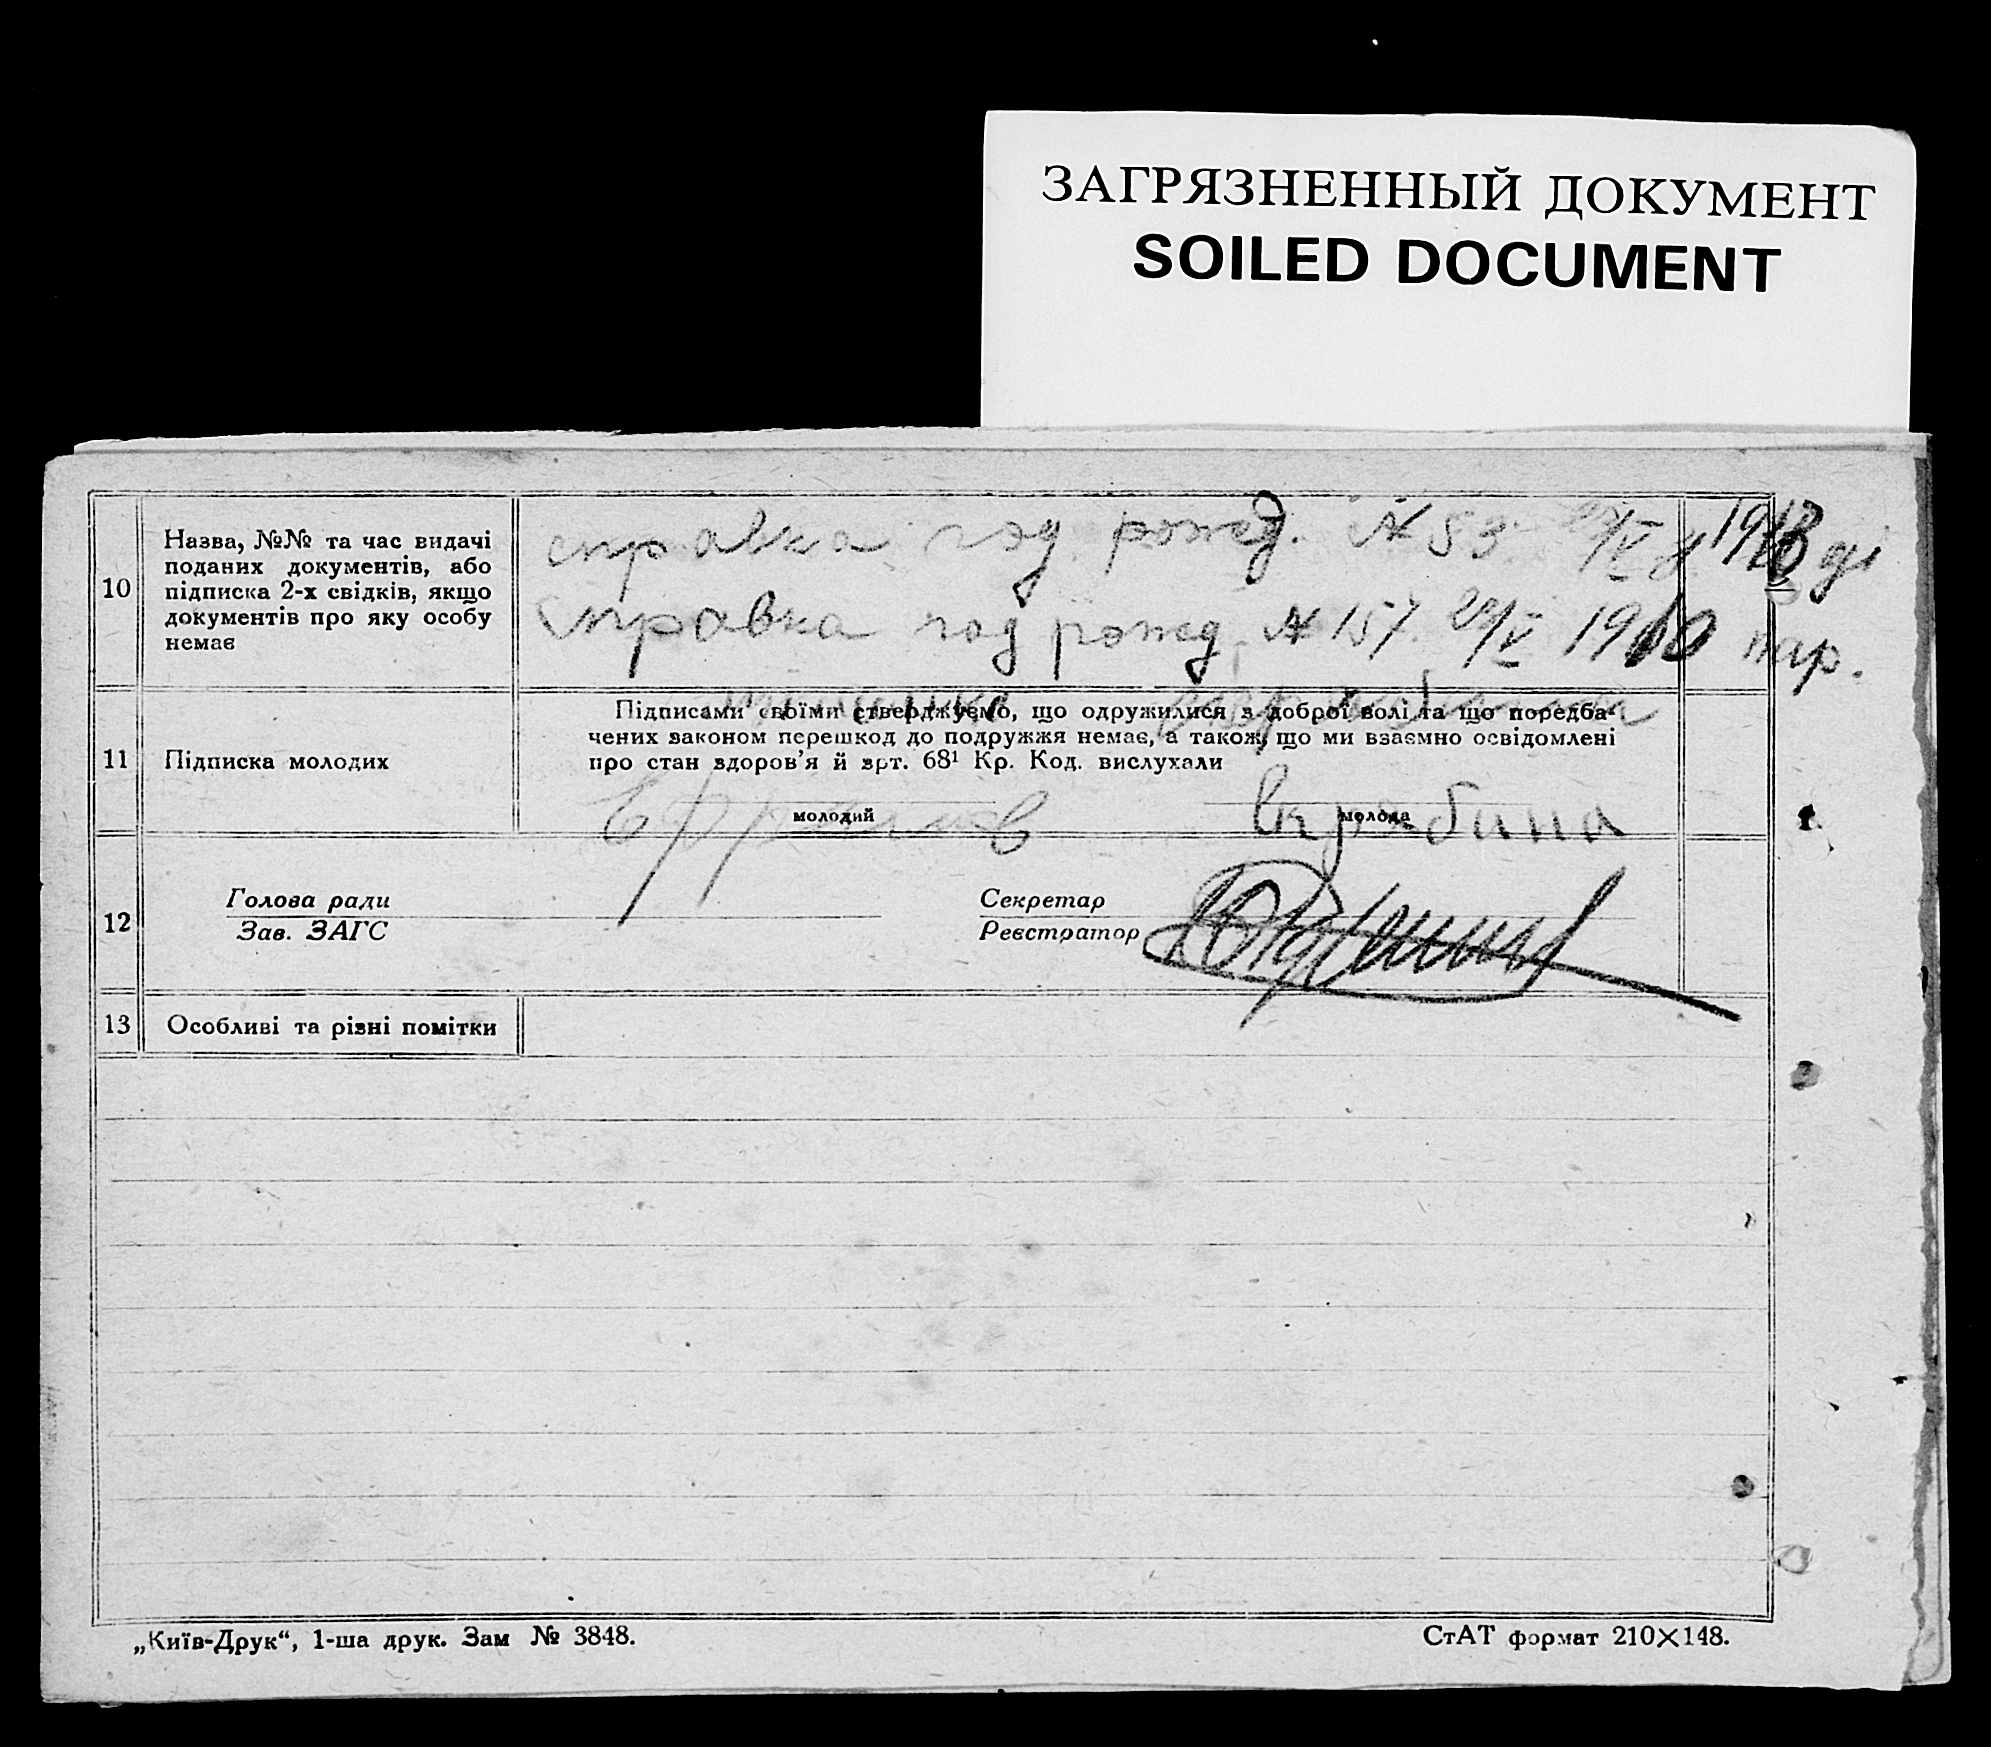 ЗАГРЯЗНЕННЫЙ ДОКУМЕНТ
SOILED DOCUMENT
10
Назва, №№ та час видачі
поданих документів, або
підписка 2-х свідків, якщо
документів про яку особу
немає
справка год рожд. № 53
справка год рожд. № 157 29/V 1910
11
Підписка молодих
Підписами своїми стверджуємо, що одружилися з доброї волі та що поредба-
чених законом перешкод до подружжя немає, а також, що ми взаємно освідомлені
про стан здоров'я й арт. 68¹ Кр. Код. вислухали
молодий
молода
12
Голова ради
Зав. ЗАГС
Секретар
Реєстратор
13
Особливі та різні помітки
„Київ-Друк“, 1-ша друк. Зам № 3848.
СтАТ формат 210×148.